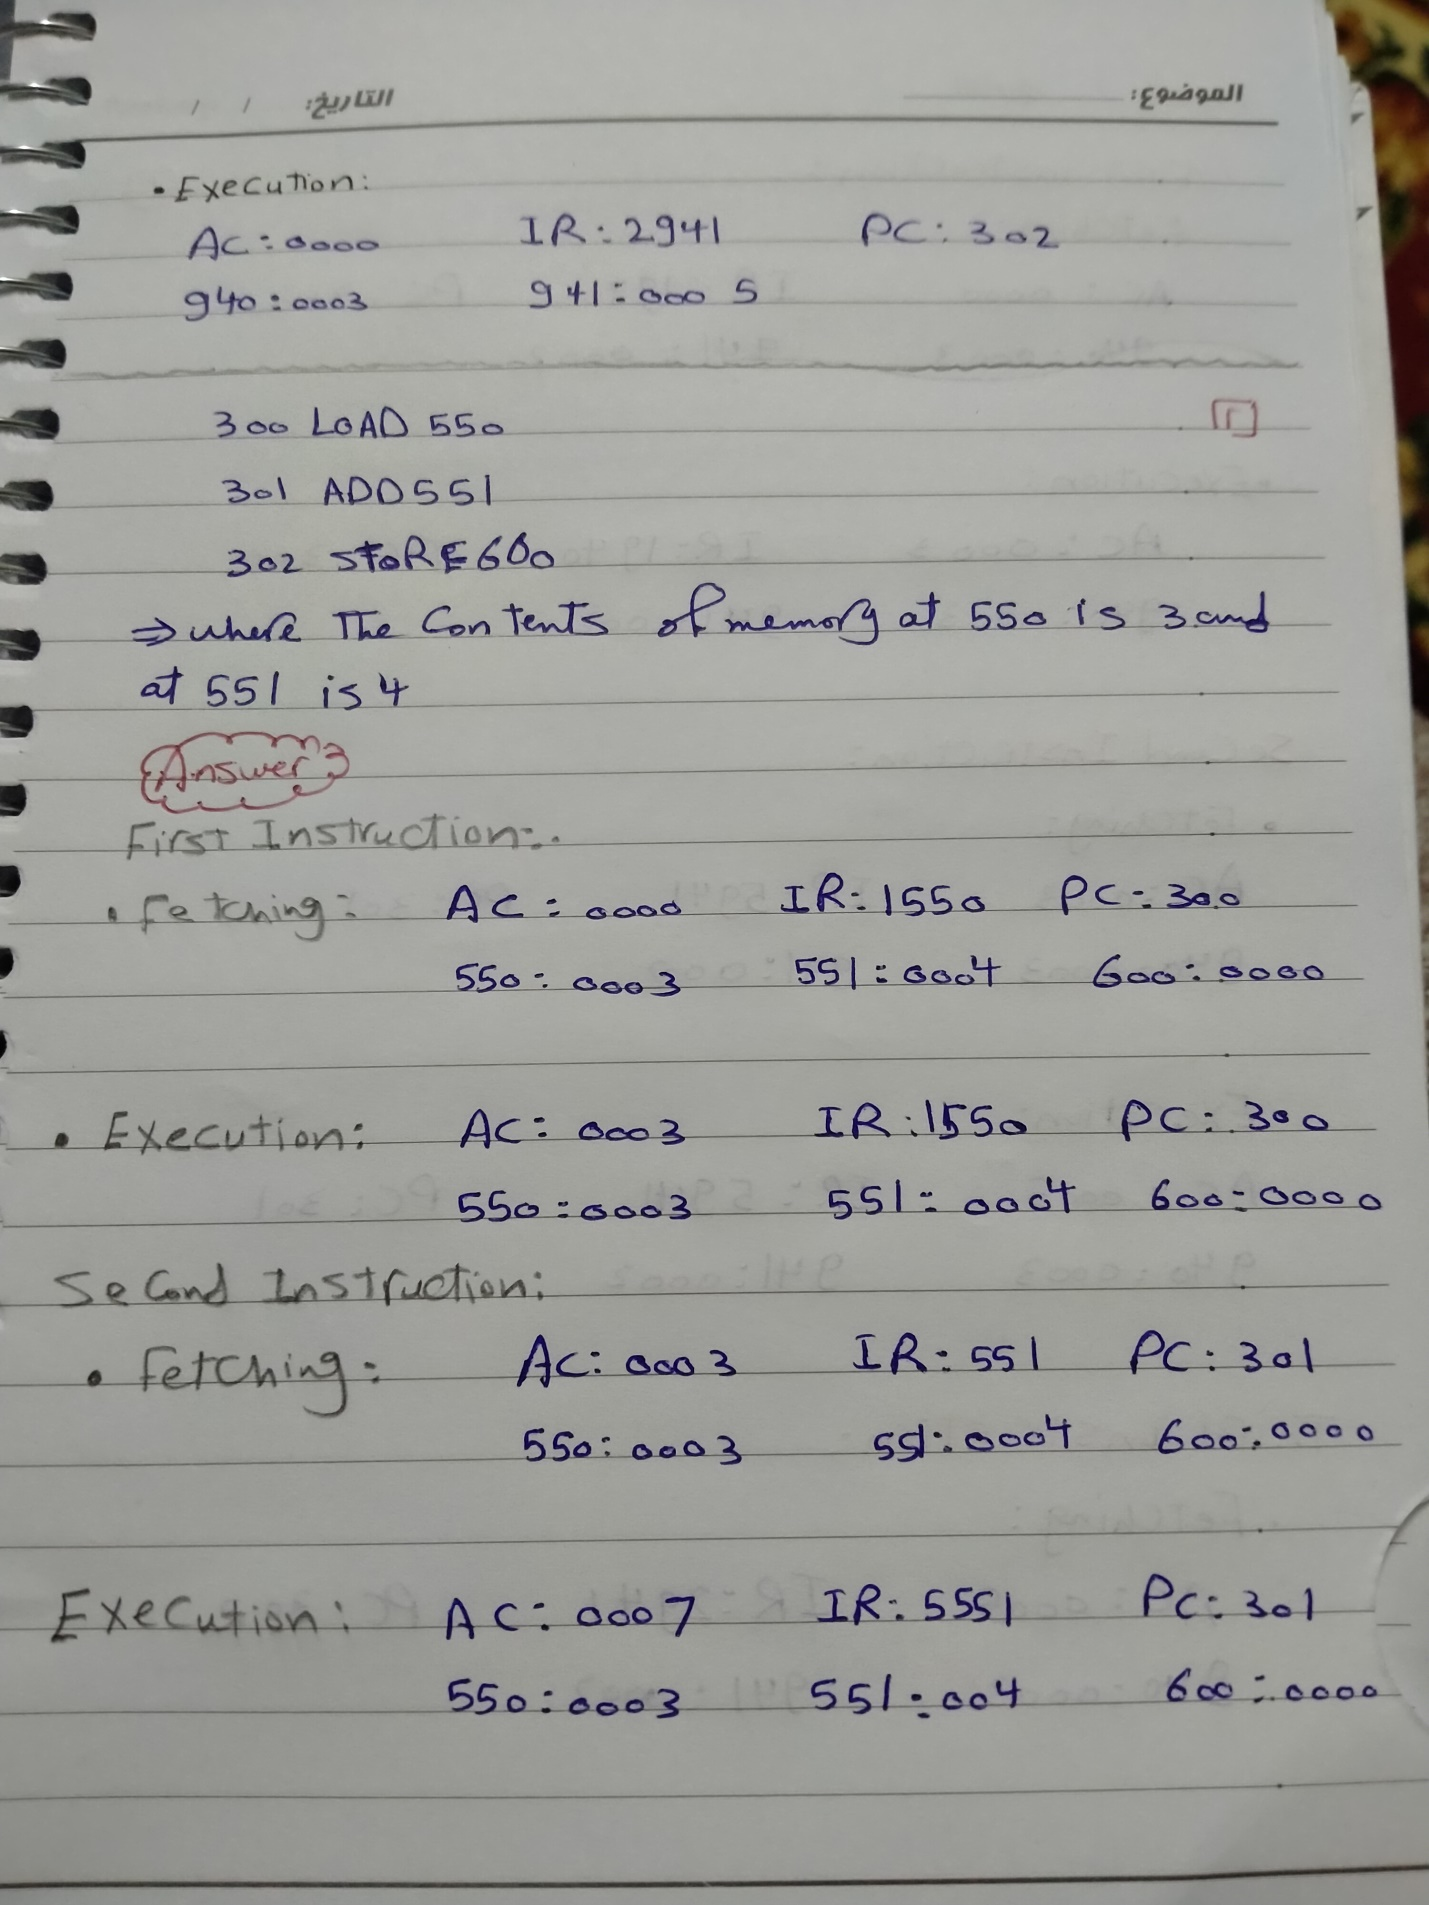 الموضوع: التاريخ: / /
• Execution:
AC: 0000 IR: 2941 PC: 302
940: 0003 941: 0005
300 LOAD 550
1
301 ADD 551
302 STORE 600
⇒ where The Contents of memory at 550 is 3 and
at 551 is 4
Answer
First Instruction:.
• Fetching: AC: 0000 IR: 1550 PC: 300
550: 0003 551: 0004 600: 0000
• Execution: AC: 0003 IR: 1550 PC: 300
550: 0003 551: 0004 600: 0000
Second Instruction:
• Fetching: AC: 0003 IR: 551 PC: 301
550: 0003 551: 0004 600: 0000
Execution: AC: 0007 IR: 5551 PC: 301
550: 0003 551: 004 600: 0000